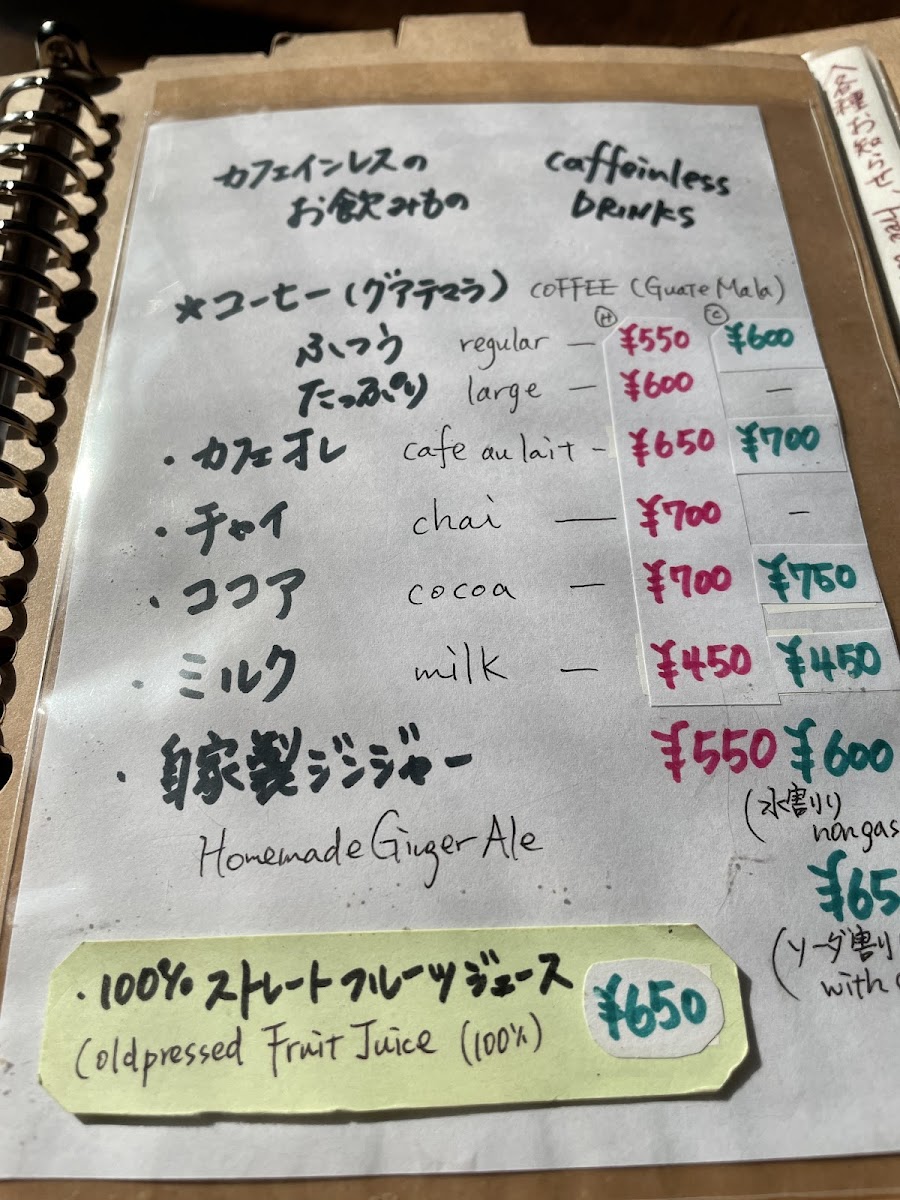 カフェインレスの
お飲みもの
caffeinless
DRINKS
★コーヒー(グアテマラ) COFFEE (GuateMala)
Ⓗ Ⓒ
ふつう regular — ¥550 ¥600
たっぷり large — ¥600 —
・カフェオレ cafe au lait - ¥650 ¥700
・チャイ chai — ¥700 —
・ココア cocoa — ¥700 ¥750
・ミルク milk — ¥450 ¥450
・自家製ジンジャー ¥550 ¥600
(水割り)
non gas
Homemade Ginger Ale
¥65
(ソーダ割り
with
・100%ストレートフルーツジュース ¥650
Coldpressed Fruit Juice (100%)
各種お知らせ、